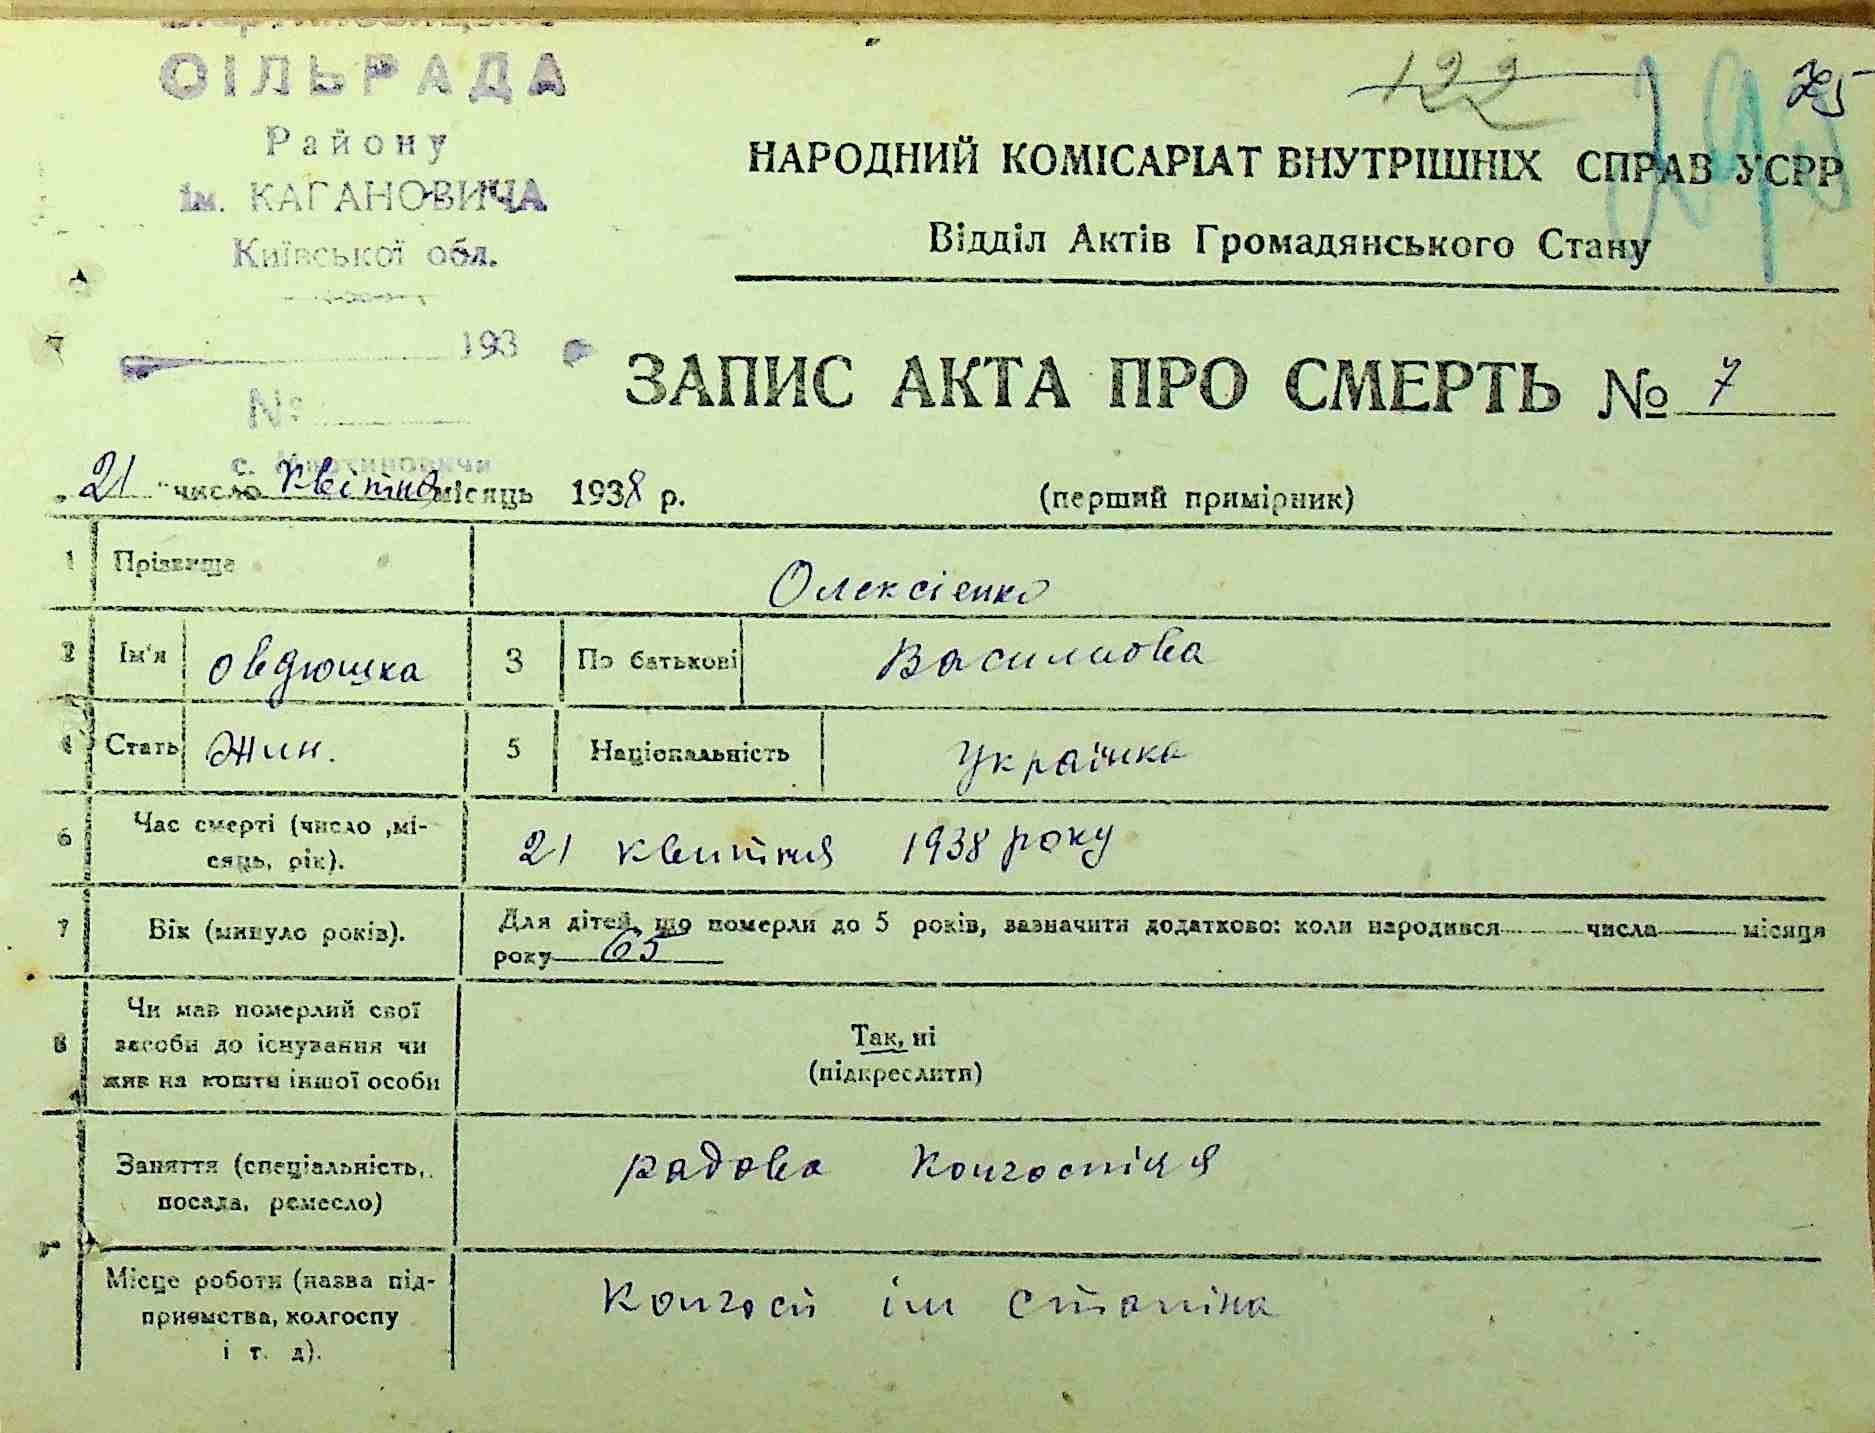 СІЛЬРАДА
Району
ім. КАГАНОВИЧА
Київської обл.
193
№
с. Мартиновичи
122
75
НАРОДНИЙ КОМІСАРІАТ ВНУТРІШНІХ СПРАВ УСРР
Відділ Актів Громадянського Стану
ЗАПИС АКТА ПРО СМЕРТЬ № 7
„21 " число квітня місяць 1938 р.
(перший примірник)
1 Прізвище Олексієнко
2 Ім'я Овдюшка 3 По батькові Василиова
4 Стать Жин. 5 Національність Українка
6 Час смерті (число ,мі-
сяць, рік). 21 квитня 1938 року
7 Вік (минуло років). Для дітей, що померли до 5 років, зазначити додатково: коли народився числа місяця
року 65
8 Чи мав померлий свої
засоби до існування чи
жив на кошти іншої особи
Так, ні
(підкреслити)
Заняття (спеціальність,
посада, ремесло)
радова Колгоспіця
Місце роботи (назва під-
приємства, колгоспу
і т. д).
Колгосп ім Сталіна